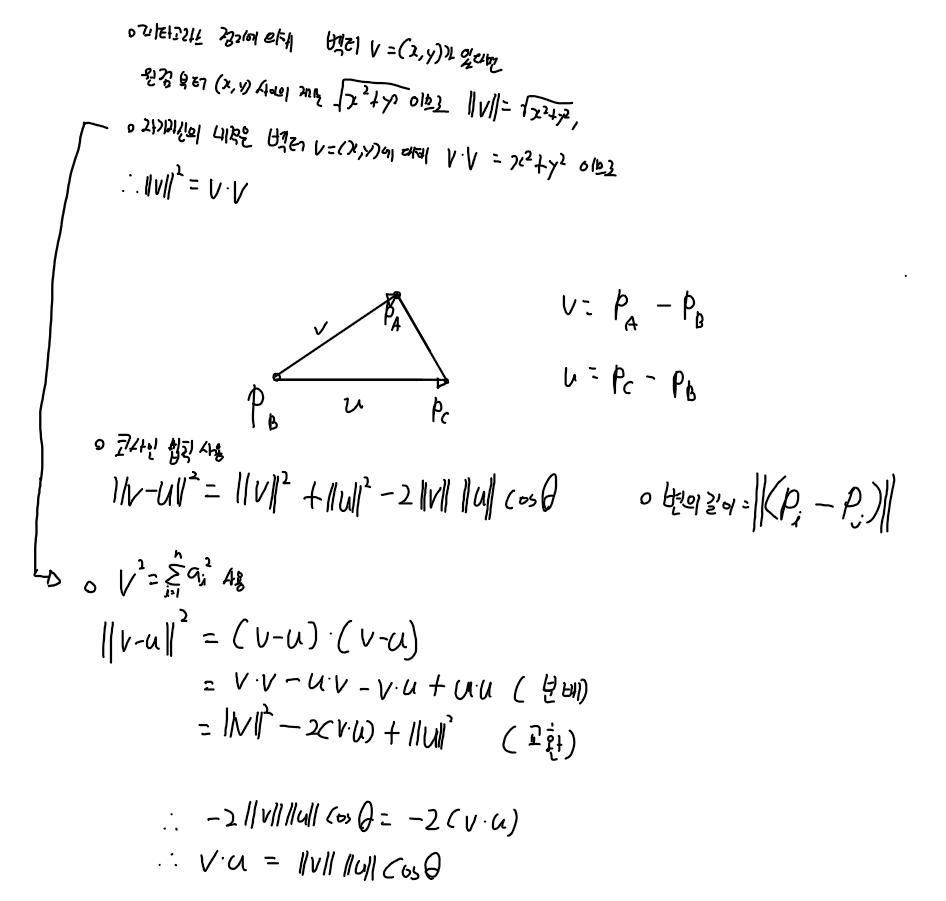 o 피타고라스 정리에 의해 벡터 V=(x,y)가 있다면
원점부터 (x,y) 사이의 거리는 √(x²+y²) 이므로 ‖v‖=√(x²+y²),
o 자기자신의 내적은 벡터 V=(x,y)에 대해 V·V = x²+y² 이므로
∴ ‖v‖² = V·V
v = P_A − P_B
P_A
v
u = P_C − P_B
P_B u P_C
o 코사인 법칙 사용
‖v-u‖² = ‖v‖² + ‖u‖² − 2‖v‖ ‖u‖ cosθ
o 변의 길이 = ‖(P_i − P_j)‖
o V² = Σ_{i=1}^{n} a_i² 사용
‖v-u‖² = (v-u)·(v-u)
= v·v − u·v − v·u + u·u (분배)
= ‖v‖² − 2(v·u) + ‖u‖² (교환)
∴ −2‖v‖‖u‖ cosθ = −2(v·u)
∴ v·u = ‖v‖ ‖u‖ cosθ